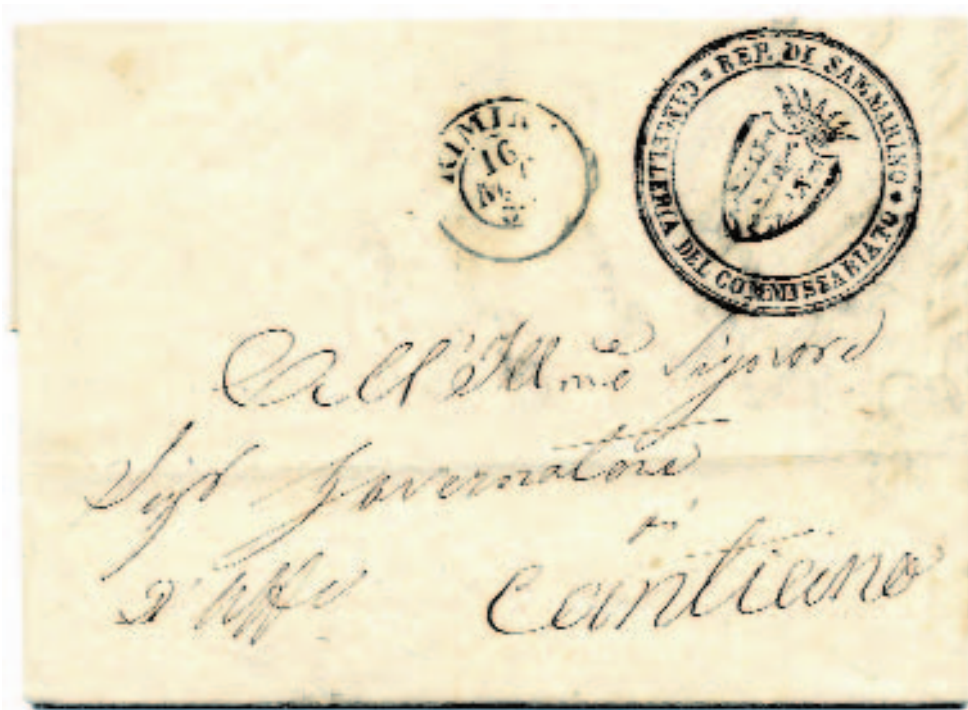 RIMINI
16
REP. DI SAMMARINO * CANCELLERIA DEL COMMISSARIATO *
All' Illmo Signore
Sigr Governatore
di
D'Uffo
Cantiano